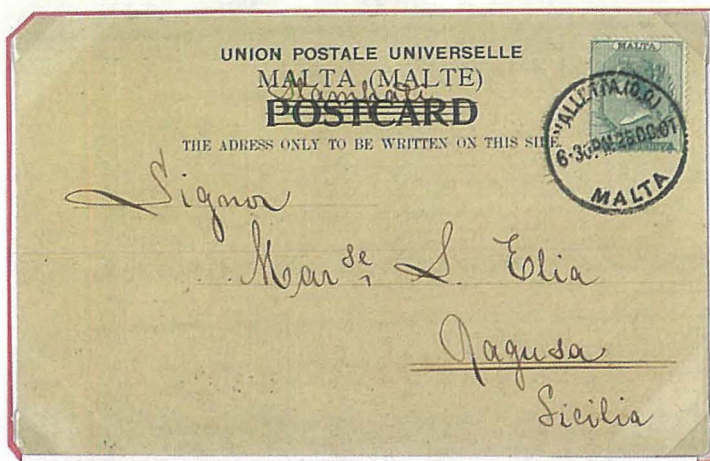 UNION POSTALE UNIVERSELLE
MALTA (MALTE)
Stampati
POSTCARD
THE ADRESS ONLY TO BE WRITTEN ON THIS SIDE
MALTA
VALLETTA (G.O.)
6-30PM 26 OC 01
MALTA
Signor
Marse S. Elia
Ragusa
Sicilia